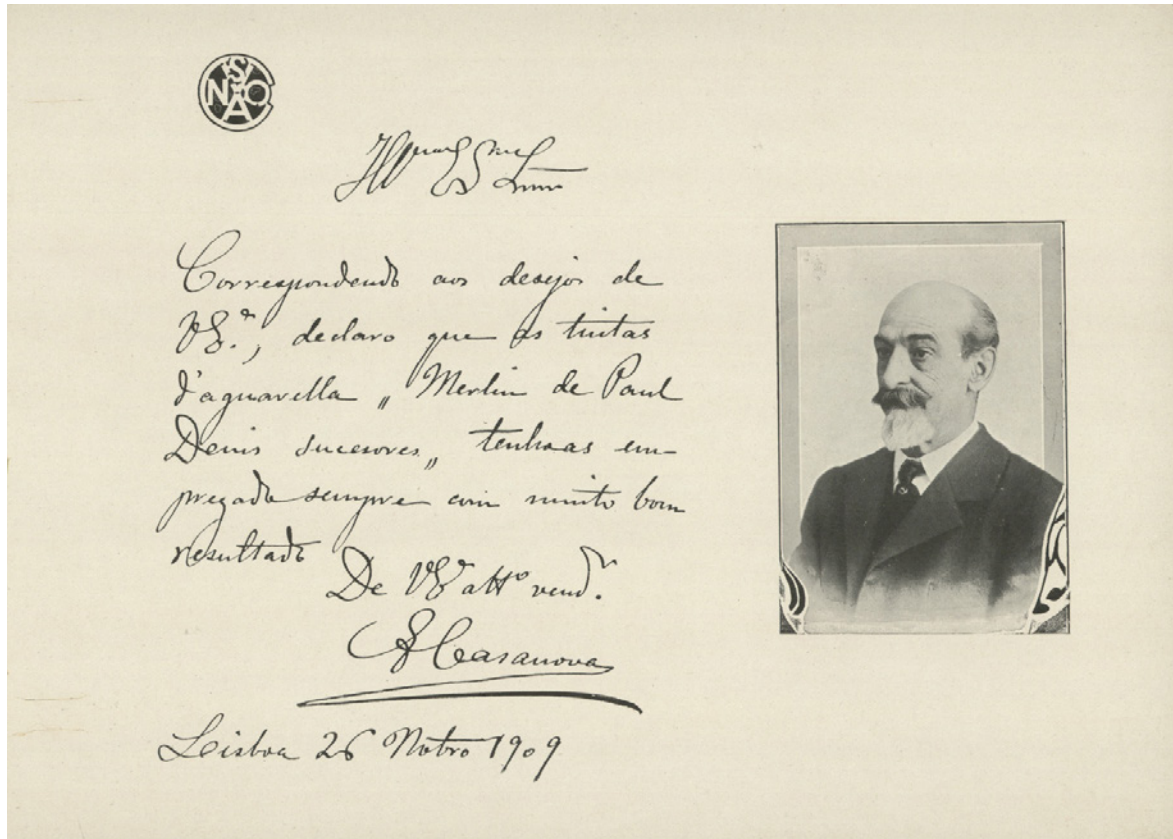 Correspondendo aos desejos de
VEª., declaro que as tintas
d'aguarella „ Merlin de Paul
Denis sucesores „ tenho-as em-
pregado sempre com muito bom
resultado
De VEª attº venᵈʳ.
Casanova
Lisboa 26 Nobro 1909